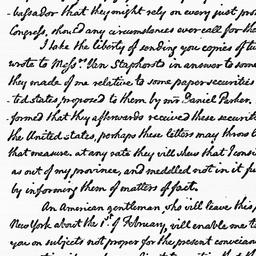 -bassador that they might rely on every just pro
Congress, should any circumstances ever call for the
I take the liberty of sending you copies of tw
wrote to Messrs. Van Staphorsts in answer to some
they made of me relative to some paper securities
-ted states proposed to them by mr Daniel Parker.
-formed that they afterwards received these securit
the United states, perhaps these letters may throw l
that measure. at any rate they will shew that I consi
as out of my province, and meddled not in it fu
by informing them of matters of fact.
An American gentleman, who will leave this p
New York about the 1st of February, will enable me to
you on subjects not proper for the present conveian